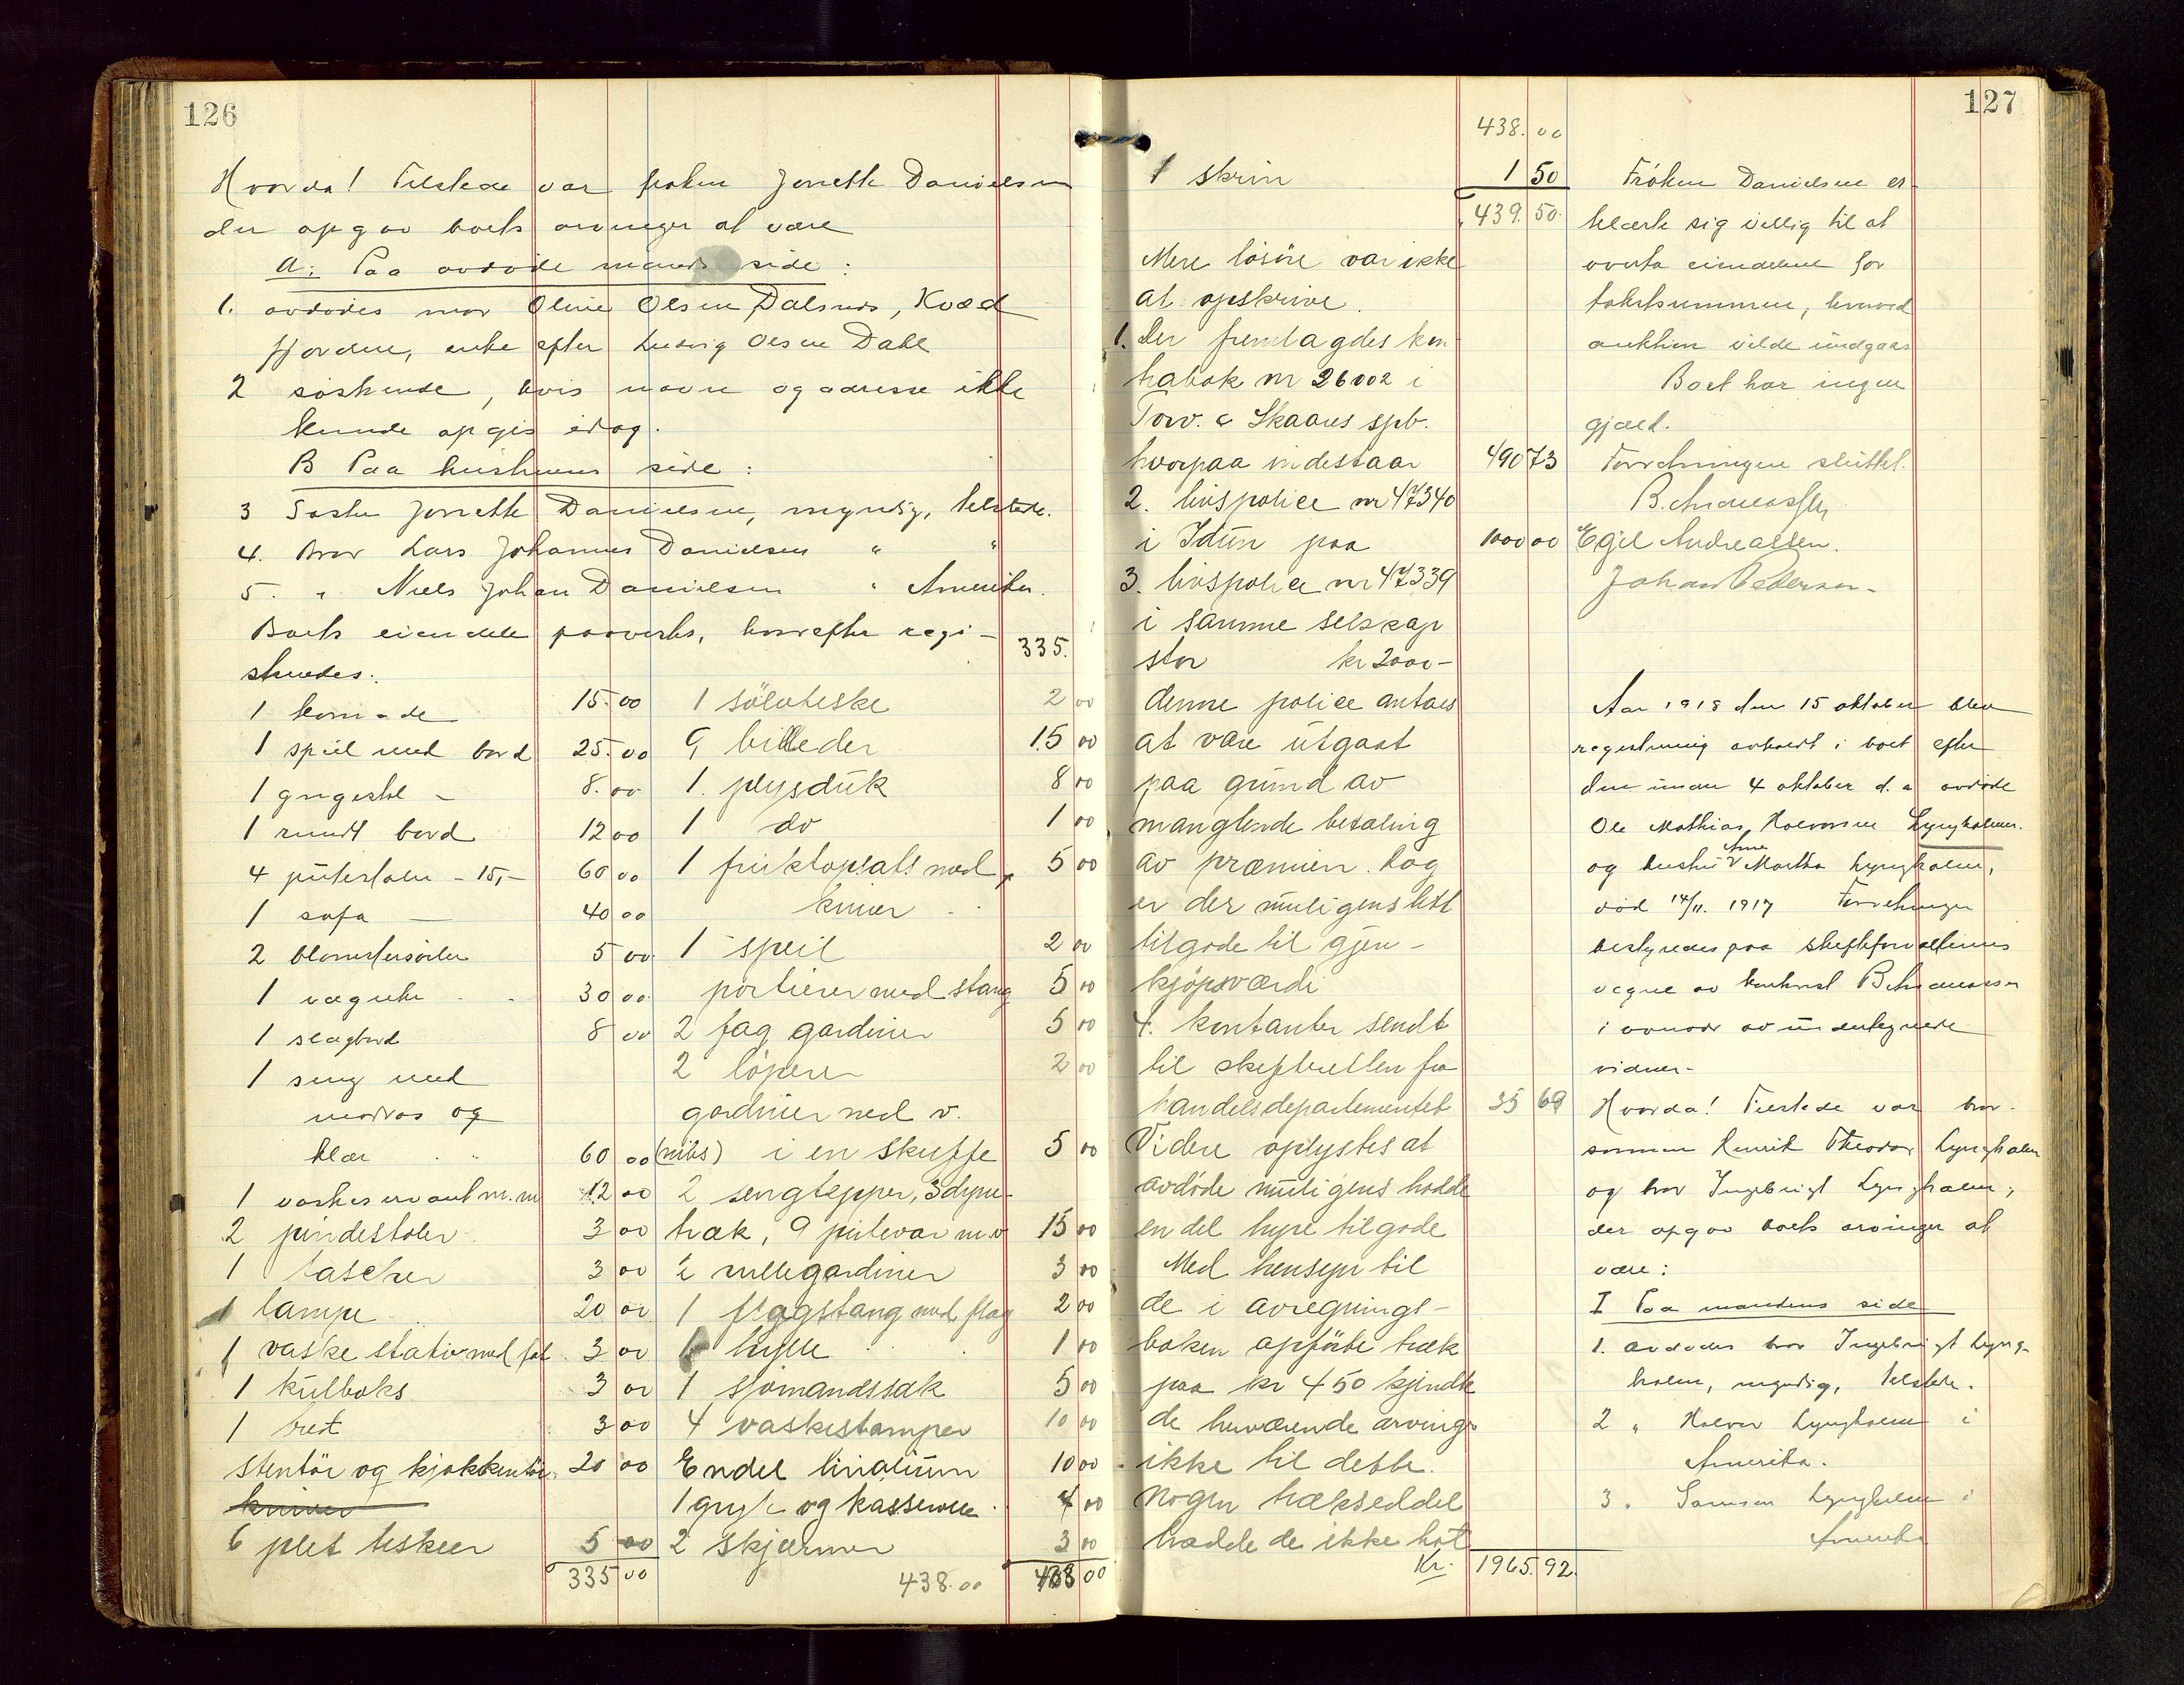 126
Hvorda! Tilstede var frøken Jenrette Danielsen
der opgav boets arvinger at være
A: Paa avdøde mands side:
1. avdødes mor Oline Olsen Dalsnes, Kvæd
fjorden, enke efter Ludvig Olsen Dahl
2 søskende, hvis navne og adresse ikke
kunde opgis idag.
B Paa hustruens side:
3 Søster Jenrette Danielsen, myndig, tilstede.
4. Bror Lars Johannes Danielsen " "
5. " Niels Johan Danielsen " Amerika.
Boets eiendele paavistes, hvorefter regi-
streredes:
1 komode 15.00
1 speil med bord 25.00
1 gyngestol - 8.00
1 rundt bord 12 00
4 putestoler - 15,- 60 00
1 sofa - 40 00
2 blomstersøiler 5 00
1 væguhr 30 00
1 slagbord 8 00
1 seng med
madras og
klær 60 00
1 vaskeservant m.m 12 00
2 pindestoler 3 00
1 tasker 3 00
1 lampe 20 00
1 vaskestativ med fat 3 00
1 kulboks 3 00
1 bret 3 00
Stentöi og kjøkkentöi 20 00
kniver
6 plet teskeer 5 00
335 00
335.
1 sölvteske 2 00
9 billeder 15 00
1. plysduk 8 00
1 do 1 00
1 fruktopsats med 5 00
kniver
1 speil 2 00
portierer med stang 5 00
2 fag gardiner 5 00
2 löpere 2 00
gardiner med v.
(nips) i en skuffe 5 00
2 sengtepper, 3 dyne-
træk, 9 putevar m.v 15 00
2 rullegardiner 3 00
1 flagstang med flag 2 00
1 hylle 1 00
1 sjømandssæk 5 00
4 vaskestamper 10 00
Endel linolium 10 00
1 gryte og kasserolle 4 00
2 skjærmer 3 00
438.00 438 00
127
438.00
1 skrin 1 50
439.50
Mere lösöre var ikke
at opskrive.
1. Der fremlagdes kon-
trabok nr 26002 i
Torv. & Skaans spb.
hvorpaa indestaar 490 73
2. livspolice nr 47340
i Idun paa 1000 00
3. livspolice nr 47339
i samme selskap
stor kr 2000-
denne police antaes
at være utgaat
paa grund av
manglende betaling
av præmien. Dog
er der muligens litt
tilgode til gjen-
kjöpsværdi
4. kontanter sendt
til skifteretten fra
handelsdepartementet 35 69
Videre oplystes at
avdöde muligens hadde
en del hyre tilgode
Med hensyn til
de i avregnings-
boken opförte træk
paa kr 450 kjendte
de herværende arvinger
ikke til dette.
Nogen trækseddel
hadde de ikke hat
Kr. 1965.92.
Fröken Danielsen er-
klærte sig villig til at
overta eiendelene for
takstsummen, hvorved
auktion vilde undgaaes
Boet har ingen
gjæld.
Forretningen sluttet.
B. Andreassen
Egil Andreassen.
Johan Pedersen.
Aar 1918 den 15 oktober blev
registrering avholdt i boet efter
den under 4 oktober d. a avdøde
Ole Mathias Halvorsen Lyngholmen.
og hustru Ane Martha Lyngholm,
død 14/11. 1917 Forretningen
bestyredes paa skifteforvalterens
vegne av lensmand B. Andreassen
i overvær av undertegnede
vidner.
Hvorda! Tilstede var bror-
sønnen Henrik Theodor Lyngholm
og bror Ingebrigt Lyngholm,
der opgav boets arvinger at
være:
I Paa mandens side
1. avdødes bror Ingebrigt Lyng-
holm, myndig, tilstede.
2 " Halvor Lyngholm i
Amerika.
3 " Samson Lyngholm i
Amerika